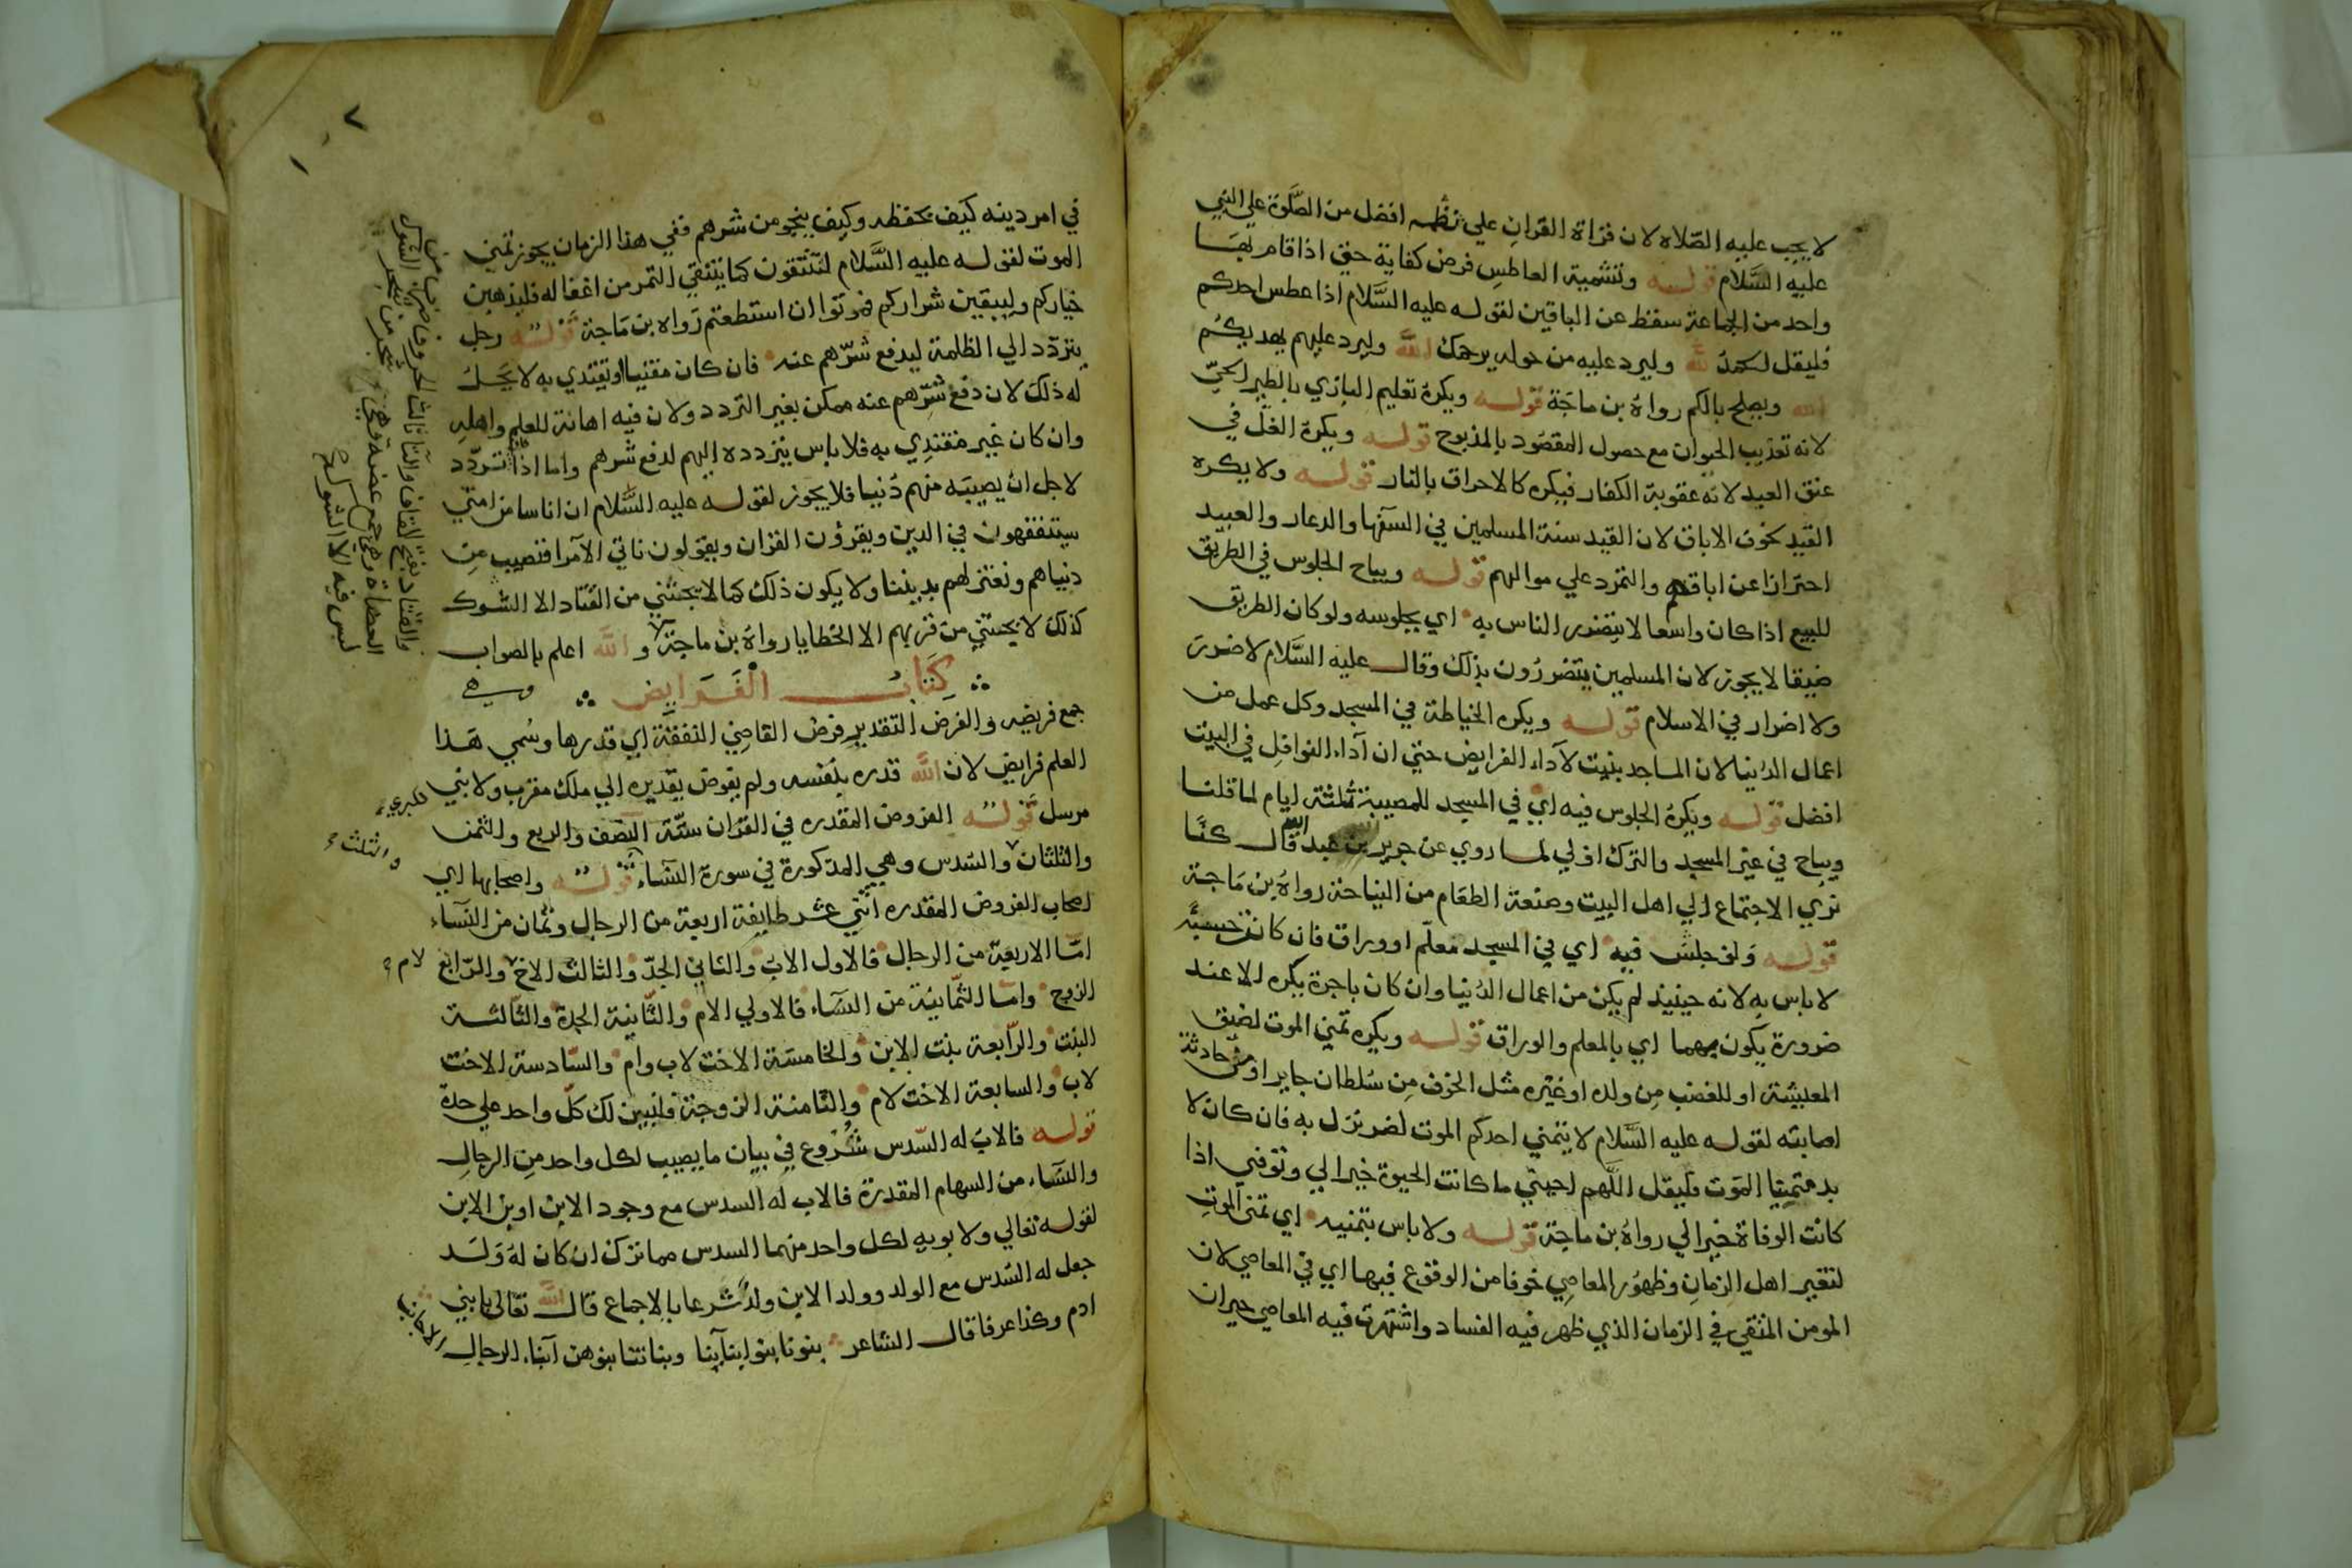 لا يجب عليه الصلاه لان قراة القران علي نظمه افضل من الصلوة علي النبي
عليه السلام قوله وتشميت العاطس فرض كفاية حتي اذا قام بها
واحد من الجماعة سقط عن الباقين لقوله عليه السلام اذا عطس احدكم
فليقل الحمد لله وليرد عليه من حوله يرحمك الله وليرد عليهم يهديكم
الله ويصلح بالكم رواه بن ماجة قوله ويكره تعليم البازي بالطير الحي
لانه تعذيب الحيوان مع حصول المقصود بالمذبوح قوله ويكره الغل في
عنق العبد لانه عقوبة الكفار فيكره كالاحراق بالنار قوله ولا يكره
القيد لخوف الاباق لان القيد سنة المسلمين في السفها والدعار والعبيد
احترازا عن اباقهم والتمرد علي مواليهم قوله ويباح الجلوس في الطريق
للبيع اذا كان واسعا لا يتضرر الناس به اي بجلوسه ولو كان الطريق
ضيقا لا يجوز لان المسلمين يتضررون بذلك وقال عليه السلام لا ضرر
ولا اضرار في الاسلام قوله ويكره الخياطة في المسجد وكل عمل من
اعمال الدنيا لان المساجد بنيت لآداء الفرايض حتي ان آداء النوافل في البيت
افضل قوله ويكره الجلوس فيه اي في المسجد للمصيبة ثلثة ايام لما قلنا
ويباح في غير المسجد والترك اولي لما روي عن جرير بن عبد الله قال كنا
نري الاجتماع الي اهل البيت وصنعة الطعام من النياحة رواه بن ماجة
قوله ولو جلس فيه اي في المسجد معلم او وراق فان كان حسبة
لا باس به لانه حينيذ لم يكن من اعمال الدنيا وان كان باجرة يكره الا عند
ضرورة يكون بهما اي بالمعلم والوراق قوله ويكره تمني الموت لضيق
المعيشة او للغضب من ولده او غيره مثل الخوف من سلطان جاير او من حادثة
اصابته لقوله عليه السلام لا يتمني احدكم الموت لضر نزل به فان كان لا
بد متمنيا الموت فليقل اللهم احيني ما كانت الحيوة خيرا لي وتوفني اذا
كانت الوفاة خيرا لي رواه بن ماجة قوله ولا باس بتمنيه اي تمني الموت
لتغير اهل الزمان وظهور المعاصي خوفا من الوقوع فيها اي في المعاصي لان
المومن المتقي في الزمان الذي ظهر فيه الفساد واشتهرت فيه المعاصي حيران
٧
في امر دينه كيف يحفظه وكيف ينجو من شرهم ففي هذا الزمان يجوز تمني
الموت لقوله عليه السلام لتنتقون كما ينتقي التمر من اغفاله فليذهبن
خياركم وليبقين شراركم فموتوا ان استطعتم رواه بن ماجة قوله رجل
يتردد الي الظلمة ليدفع شرهم عنه فان كان مفتيا او يقتدي به لا يحل
له ذلك لان دفع شرهم عنه ممكن بغير التردد ولان فيه اهانة للعلم واهله
وان كان غير مقتدي به فلا باس بتردده اليهم لدفع شرهم واما اذا تردد
لاجل ان يصيبه منهم دنيا فلا يجوز لقوله عليه السلام ان اناسا من امتي
سيتفقهون في الدين ويقرؤن القران ويقولون ناتي الامرا فنصيب من
دنياهم ونعتزلهم بديننا ولا يكون ذلك كما لا يجتني من القتاد الا الشوك
كذلك لا يجتني من قربهم الا الخطايا رواه بن ماجة والله اعلم بالصواب
كتاب الفرايض وهي
جمع فريضه والفرض التقدير فرض القاضي النفقة اي قدرها وسمي هذا
العلم فرايض لان الله قدره بنفسه ولم يفوض تقديره الي ملك مقرب ولا نبي
مرسل قوله الفروض المقدره في القران ستة النصف والربع والثمن
والثلثان والسدس وهي المذكورة في سورة النساء قوله واصحابها اي
اصحاب الفروض المقدره اثني عشر طايفة اربعة من الرجال وثمان من النساء
اما الاربعة من الرجال فالاول الاب والثاني الجد والثالث الاخ والرابع
الزوج واما الثمانية من النساء فالاولي الام والثانية الجدة والثالثة
البنت والرابعة بنت الابن والخامسة الاخت لاب وام والسادسة الاخت
لاب والسابعة الاخت لام والثامنة الزوجة فلنبين لك كل واحد علي حدة
قوله فالاب له السدس شروع في بيان ما يصيب لكل واحد من الرجال
والنساء من السهام المقدرة فالاب له السدس مع وجود الابن او بن الابن
لقوله تعالي ولابويه لكل واحد منهما السدس مما ترك ان كان له ولد
جعل له السدس مع الولد وولد الابن ولد شرعا بالاجماع قال الله تعالي يا بني
ادم وكذا عرفا قال الشاعر بنونا بنوا ابناينا وبناتنا بنوهن آبناء الرجال
الاجانب
والثلث
لام
والقتاد بفتح القاف والتا ثالث الحروف
ليس فيه الا الشوك